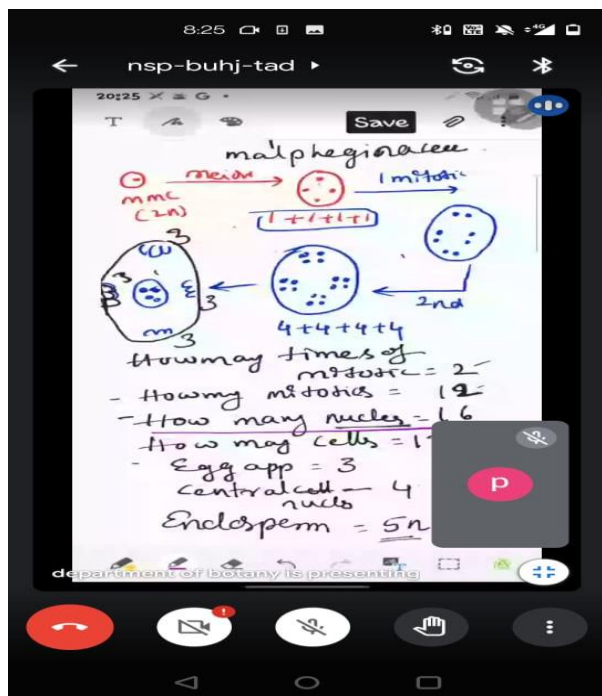 8:25
Vo)) LTE
4G
nsp-buhj-tad
20:25 G
T Save
malphegiaraceee
meiosis 1 mitotic
mmc
(2n)
1+1+1+1
3
3
3
3
2nd
4+4+4+4
How may times of
mitotic = 2
- Howmy mitotics = 12
- How many nucles = 16
How may cells = 1
- Egg app = 3
central cell - 4
nucls
Endosperm = 5n
P
department of botany is presenting